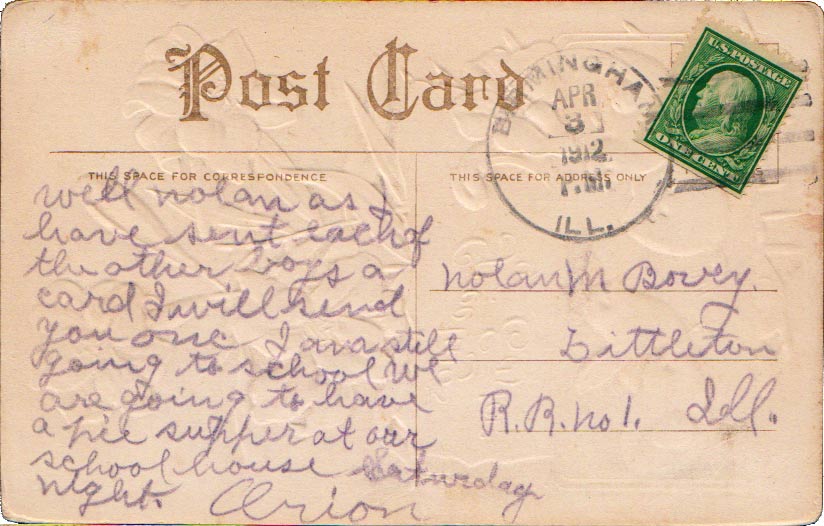 Post Card
BIRMINGHAM
APR
3
1912
P.M.
ILL.
U.S. POSTAGE
ONE CENT
THIS SPACE FOR CORRESPONDENCE
THIS SPACE FOR ADDRESS ONLY
well nolan as I
have sent each of
the other boys a
card I will send
you one I am still
going to school we
are going to have
a pie supper at our
school house Saturday
night. Orion
Nolan M Bovey.
Littleton
R.R. no 1. Ill.